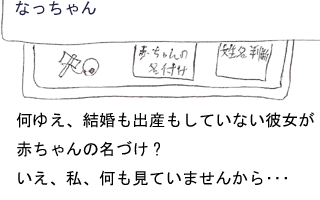 なっちゃん
赤ちゃんの
名付け
姓名判断
何ゆえ、結婚も出産もしていない彼女が
赤ちゃんの名づけ？
いえ、私、何も見ていませんから･･･